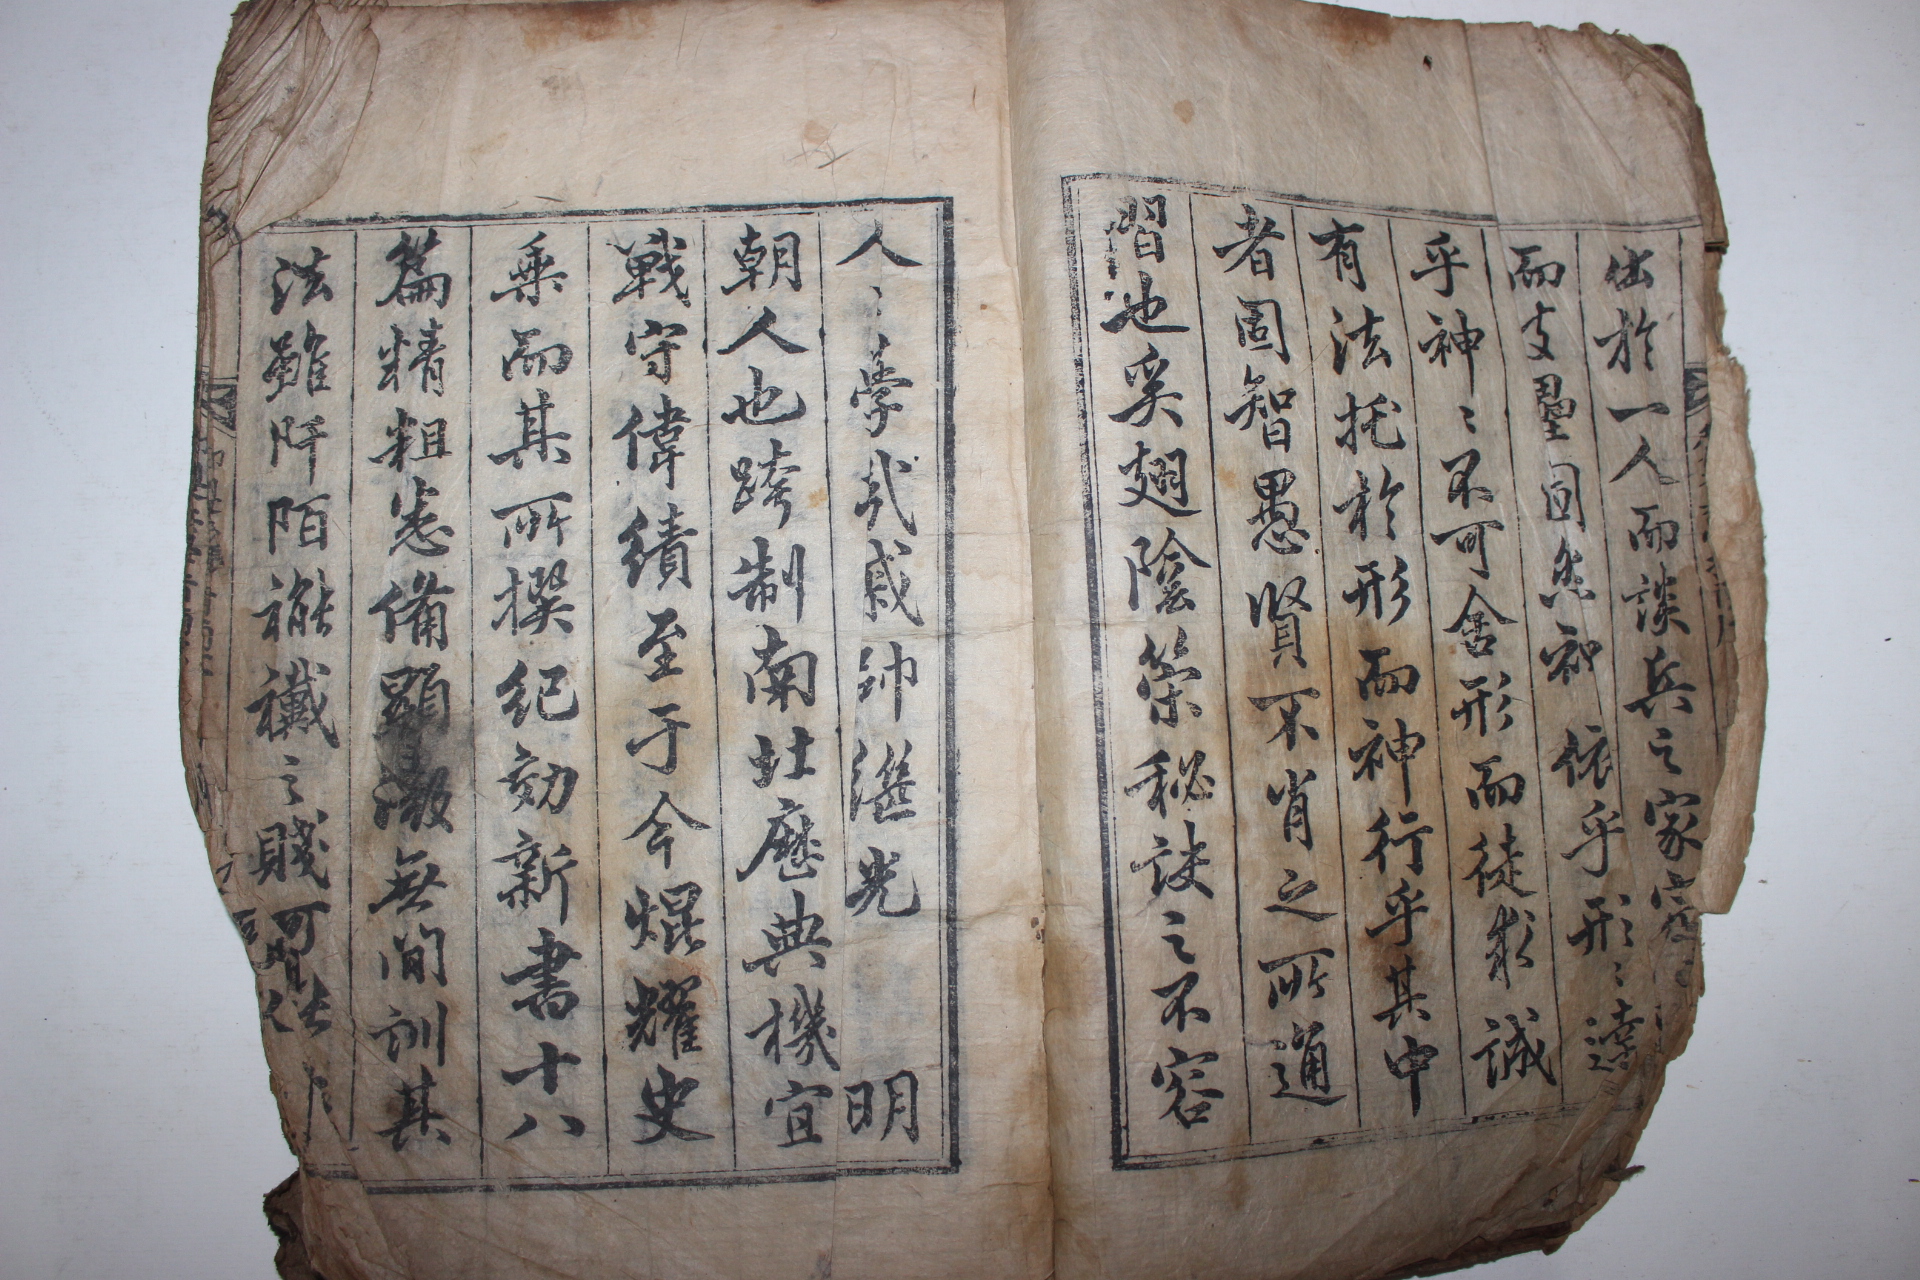 出於一人而談兵之家
而支壘固怎神依乎形〻達
乎神〻不可舍形而徒求誠
有法托於形而神行乎其中
者固智愚賢不肖之所通
習也奚翅陰符秘訣之不容
人〻學哉戚帥繼光 明
朝人也跨制南北應典機宜
戰守偉績至于今焜耀史
乘而其所撰紀効新書十八
篇精粗悉備顯微無間訓其
法雖阡陌襶襳之賤可